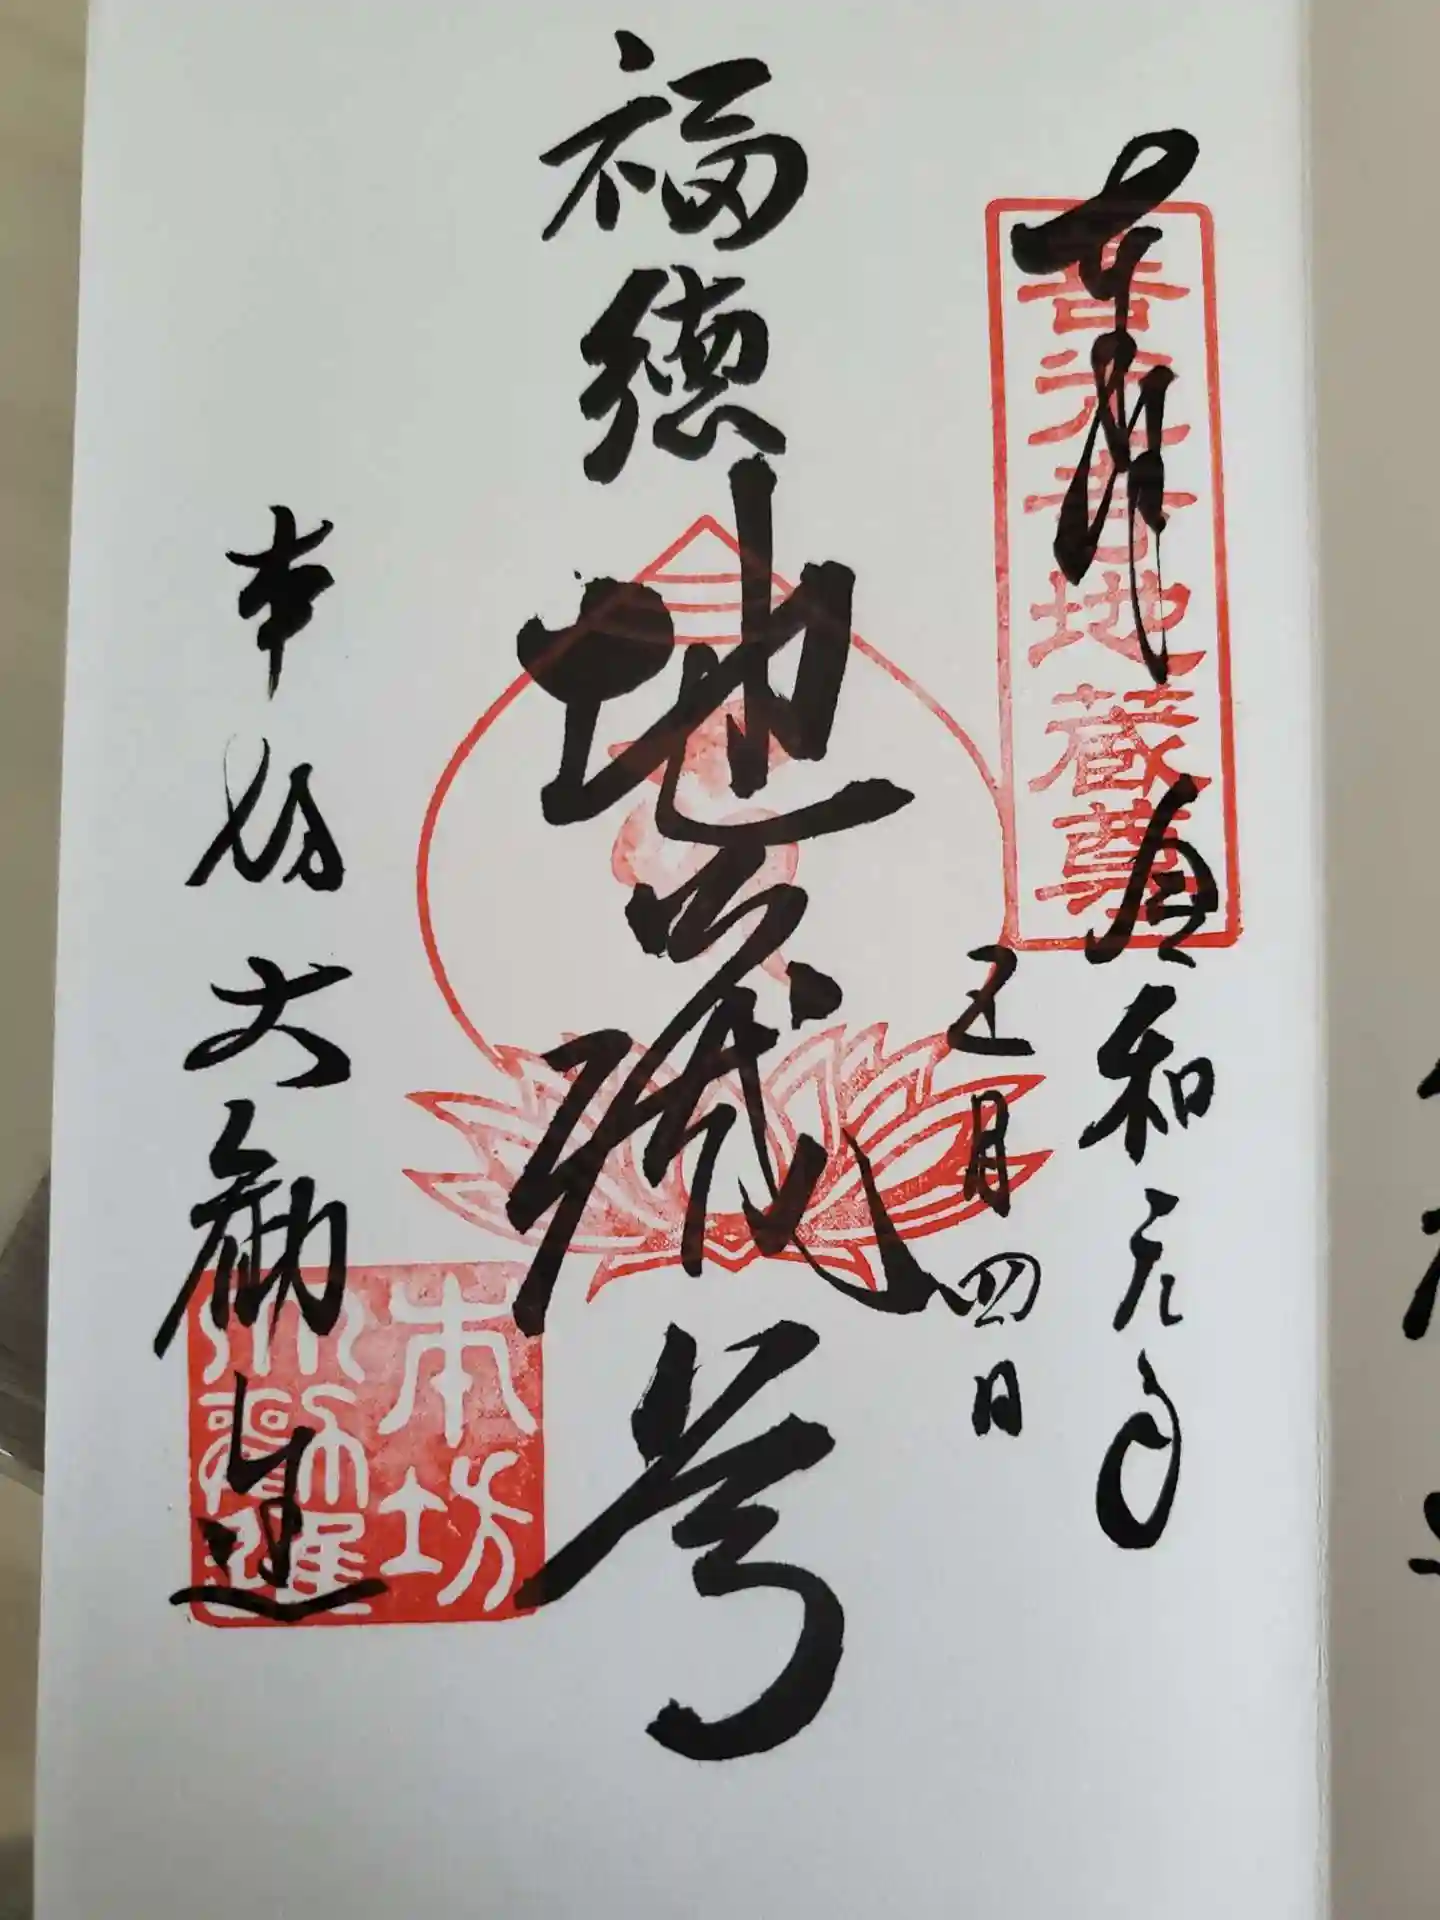 奉拝
善光寺地蔵尊
令和元年
五月四日
福徳
地蔵尊
本坊大勧進
本坊
大勧進